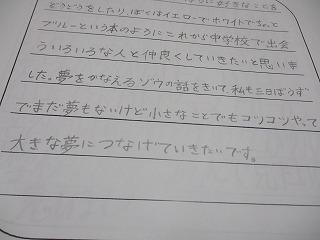 どうとうをしたり、ぼくはイエローでホワイトでちょっと
ブルーという本のようにこれから中学校で出会
ういろいろな人と仲良くしていきたいと思いま
した。夢をかなえるゾウの話をきいて、私も三日ぼうず
でまだ夢もないけど小さなことでもコツコツやって
大きな夢につなげていきたいです。